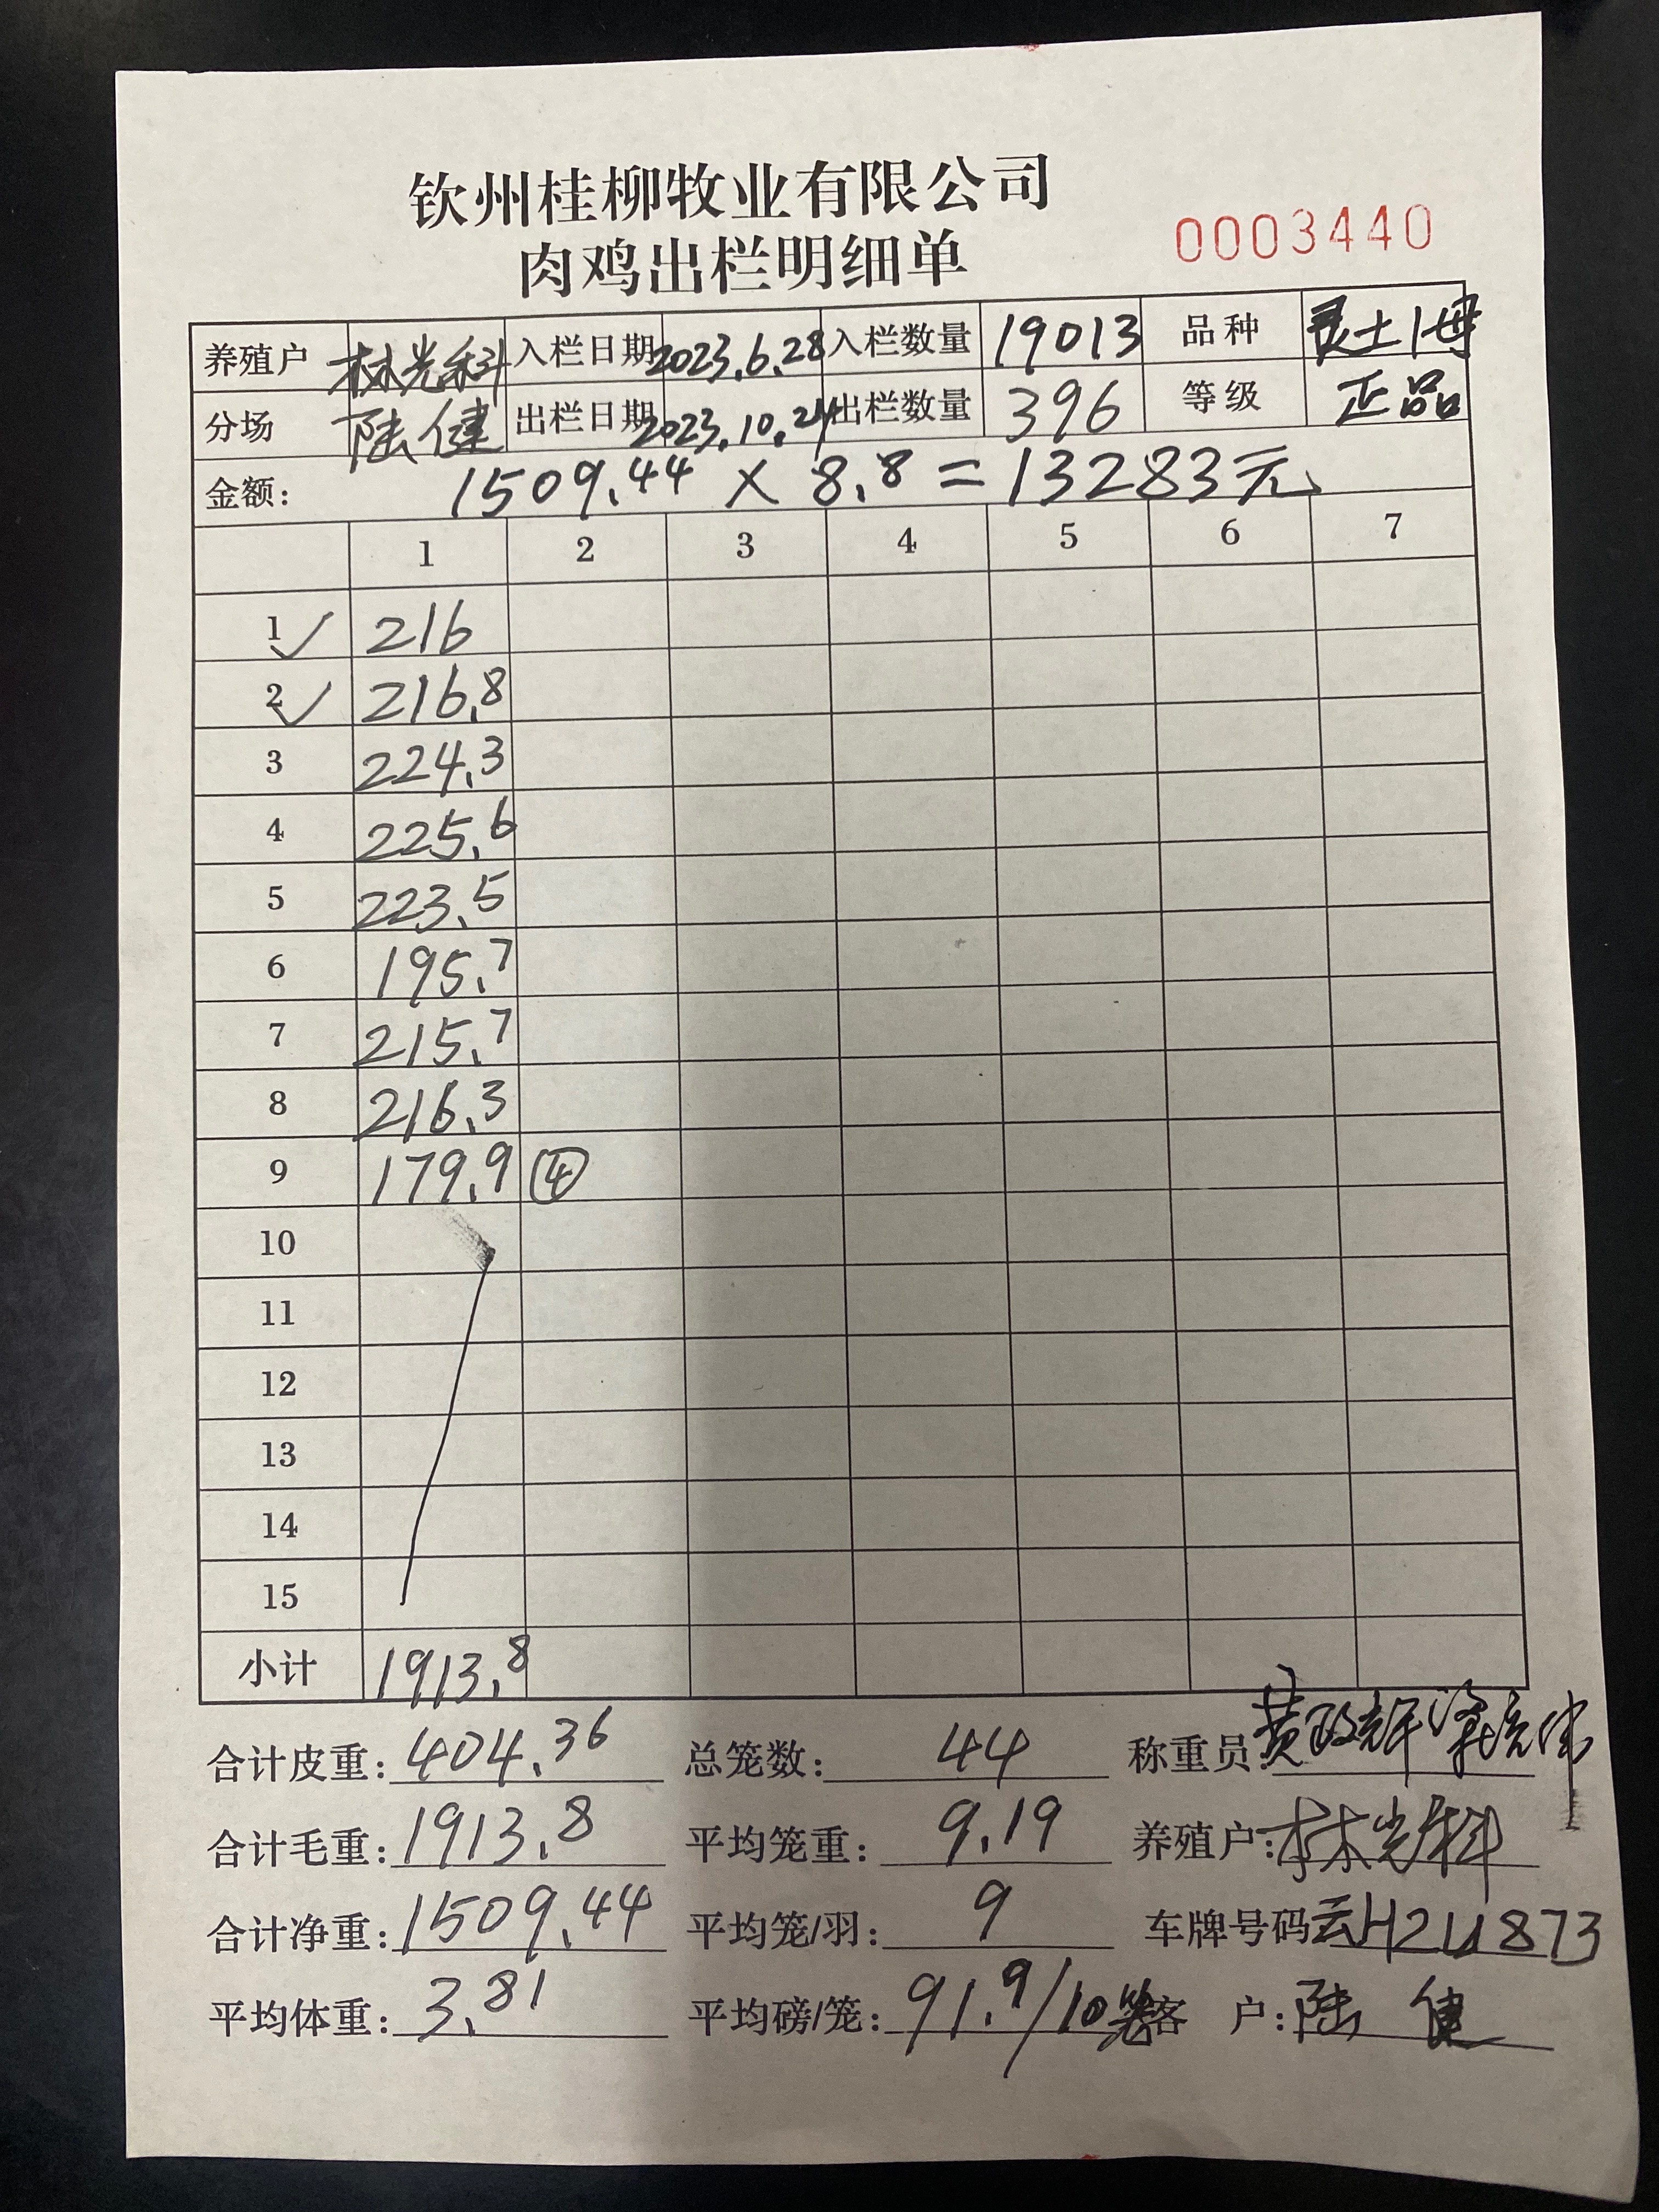 钦州桂柳牧业有限公司
肉鸡出栏明细单
0003440
养殖户 林光科 入栏日期 2023.6.28 入栏数量 19013 品种 灵土1母
分场 陆健 出栏日期 2023.10.24 出栏数量 396 等级 正品
金额: 1509.44 × 8.8 = 13283元
1 2 3 4 5 6 7
1 ✓ 216
2 ✓ 216.8
3 224.3
4 225.6
5 223.5
6 195.7
7 215.7
8 216.3
9 179.9 ④
10
11
12
13
14
15
小计 1913.8
合计皮重: 404.36 总笼数: 44 称重员:
合计毛重: 1913.8 平均笼重: 9.19 养殖户: 林光科
合计净重: 1509.44 平均笼/羽: 9 车牌号码 云H2U873
平均体重: 3.81 平均磅/笼: 91.9/10笼 客 户: 陆 健